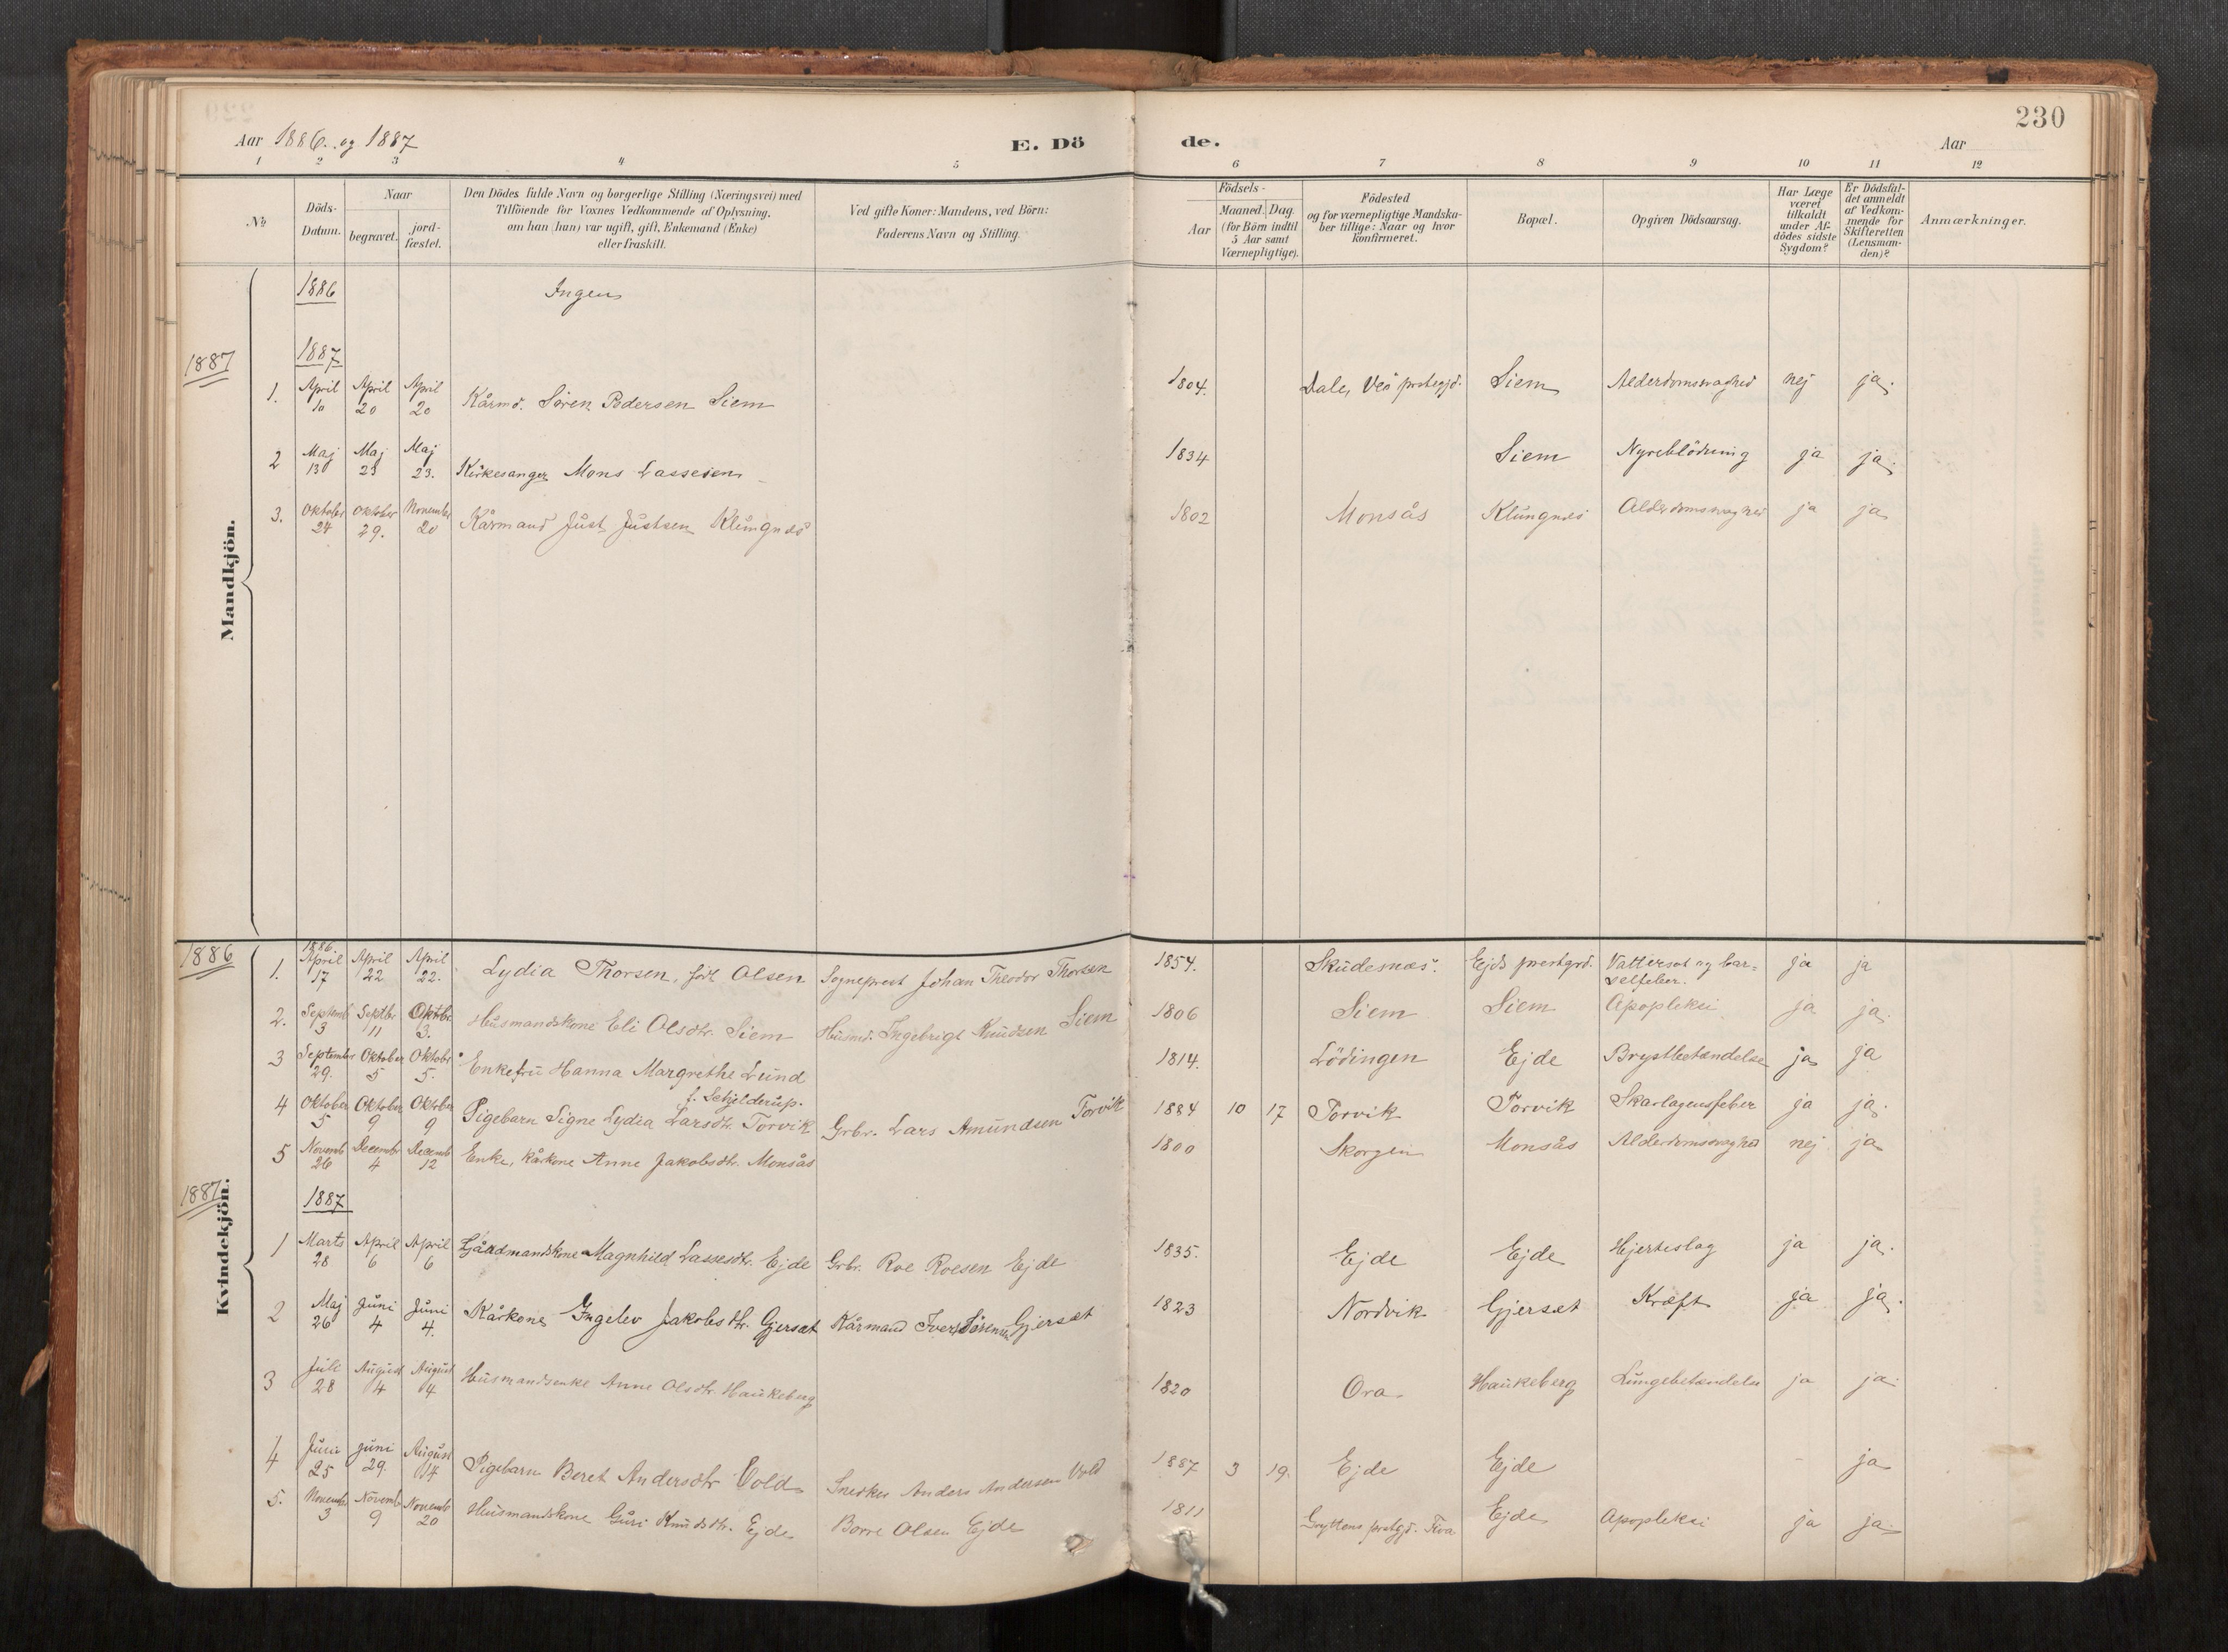 230
Aar 1886. og 1887
E. Dö de.
Aar
1 2 3 4 5 6 7 8 9 10 11 12
No
Döds-Datum.
Naar
begravet.
jord-fæstet.
Den Dödes fulde Navn og borgerlige Stilling (Næringsvei) med
Tilföiende for Voxnes Vedkommende af Oplysning,
om han (hun) var ugift, gift, Enkemand (Enke)
eller fraskilt.
Ved gifte Koner: Mandens, ved Börn:
Faderens Navn og Stilling.
Födsels-
Aar
Maaned. Dag
(for Börn indtil
5 Aar samt
Værnepligtige).
Födested
og for værnepligtige Mandska-
ber tillige: Naar og hvor
konfirmeret.
Bopæl.
Opgiven Dödsaarsag.
Har Læge
været
tilkaldt
under Af-
dödes sidste
Sygdom?
Er Dödsfal-
det anmeldt
af Vedkom-
mende for
Skifteretten
(Lensman-
den)?
Anmærkninger.
Mandkjön.
1886 Ingen
1887 1887
1. April 10 April 20 April 20 Kårmd. Sören Pedersen Siem 1804. Dale, Veö prstegjd. Siem Alderdomssvaghed nej ja.
2 Maj 13 Maj 23 Maj 23. Kirkesanger Mons Lassesen 1834 Siem Nyreblödning ja ja.
3. Oktober 24 Oktober 29. November 20 Kårmand Just Justsen Klungnes 1802 Monsås Klungnes Alderdomssvaghed ja ja
Kvindekjön.
1886 1886.
1. April 17 April 22 April 22. Lydia Thorsen, föd Olsen Sogneprest Johan Theodor Thorsen 1854. Skudesnæs. Ejds prestgrd. Vattersot og bar=
selfeber. ja ja
2. Septemb 3 Septbr 11 Oktbr 3. Husmandskone Eli Olsdtr. Siem Husmd. Ingebrigt Knudsen Siem 1806 Siem Siem Apopleksi ja ja.
3 September 29. Oktober 5 Oktober 5. Enkefru Hanna Margrethe Lund
f. Schjelderup. 1814. Lödingen Ejde Brystbetændelse ja ja
4 Oktober 5 Oktober 9 Oktober 9 Pigebarn Signe Lydia Larsdtr. Torvik Grbr. Lars Amundsen Torvik 1884 10 17 Torvik Torvik Skarlagensfeber ja ja.
5 Novemb 26 Decembr 4 Decemb 12 Enke, kårkone Anne Jakobsdtr. Monsås 1800 Skorgen Monsås Alderdomssvaghed nej ja
1887 1887
1 Marts 28 April 6 April 6 Gårdmandskone Magnhild Lassesdtr. Ejde Grbr. Roe Roesen Ejde 1835. Ejde Ejde Hjerteslag ja ja.
2 Maj 26 Juni 4 Juni 4. Kårkone Ingelev Jakobsdtr. Gjerset Kårmand Iver Sörensen Gjerset 1823 Nordvik Gjerset Kræft ja ja.
3 Juli 28 August 4 August 4 Husmandsenke Anne Olsdtr. Haukeberg 1820 Ora. Haukeberg Lungebetændelse ja ja.
4 Juni 25 Juni 29. August 14 Pigebarn Beret Andersdtr Vold Snedker Anders Andersen Vold 1887 3 19. Ejde Ejde ja
5. Novemb 3 Novemb 9 Novemb 20 Husmandskone Guri Knudsdtr. Ejde Borre Olsen Ejde 1811 Gryttens prstgjd. Ejde Apopleksi ja ja.